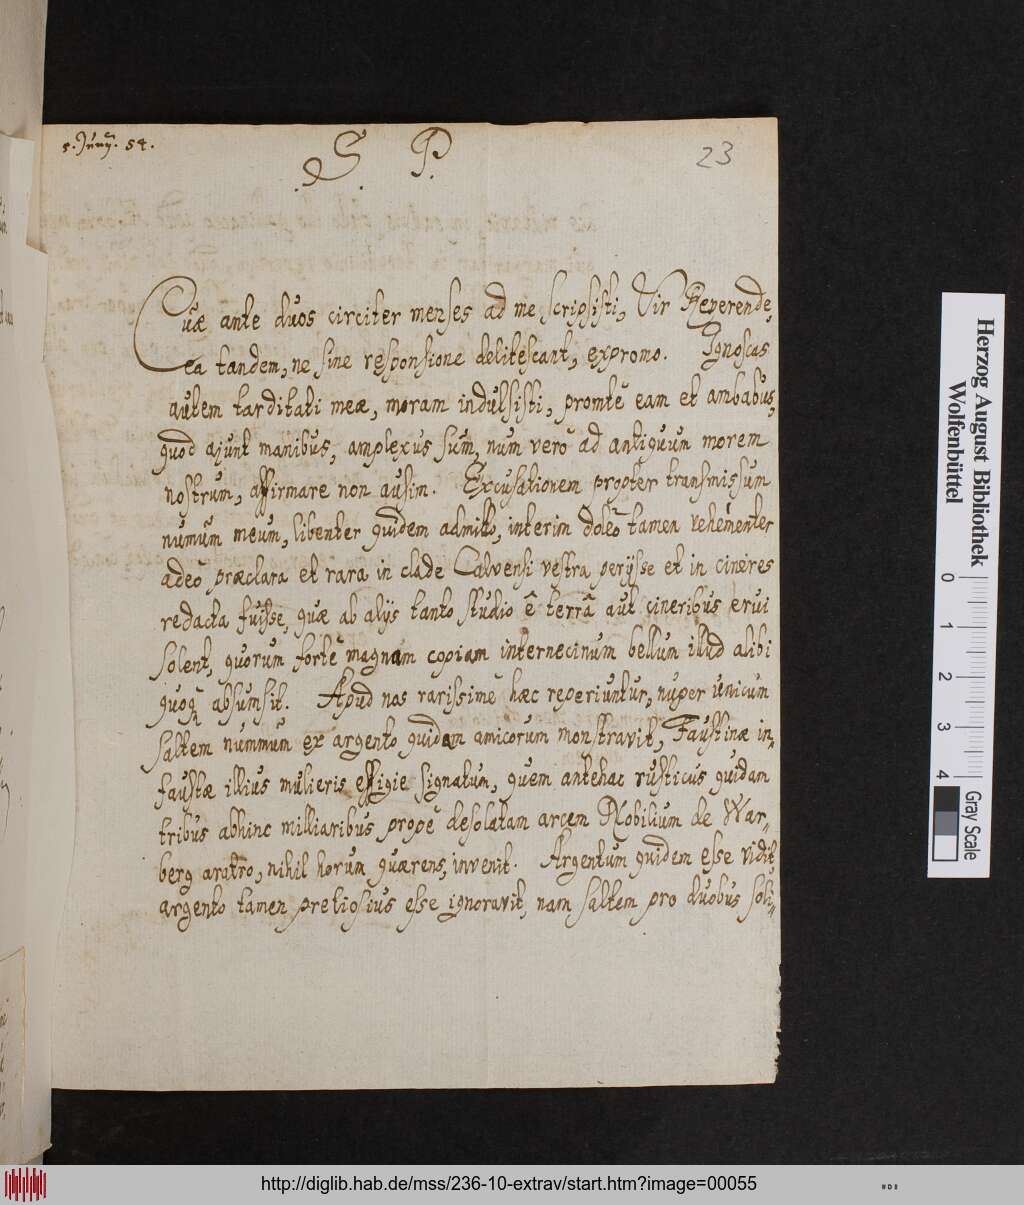 5. Junij. 54.
S. P.
23
Quæ ante duos circiter menses ad me scripsisti, Vir Reverende,
ea tandem, ne sine responsione delitescant, expromo. Ignoscas
autem tarditati meæ, moram indulsisti, promtè eam et ambabus,
quod ajunt manibus, amplexus sum, num verò ad antiquum morem
nostrum, affirmare non ausim. Excusationem propter transmissum
numūm meum, libenter quidem admitto, interim doleo tamen vehementer
adeò præclara et rara in clade Calvensi vestra perijsse et in cineres
redacta fuisse, quæ ab alijs tanto studio ê terrâ aut cineribus erui
solent, quorum fortè magnam copiam internecinum bellum illud alibi
quoq absumsit. Apud nos rarissimè hæc reperiuntur, nuper unicum
saltem nummum ex argento quidam amicorum monstravit, Faustinæ in-
faustæ illius mulieris effigie signatum, quem antehac rusticus quidam
tribus abhinc milliaribus propè desolatam arcem Nobilium de War-
berg aratro, nihil horum quærens, invenit. Argentum quidem esse vidit
argento tamen pretiosius esse ignoravit, nam saltem pro duobus soli-
Herzog August Bibliothek
Wolfenbüttel
0 1 2 3 4
Gray Scale
http://diglib.hab.de/mss/236-10-extrav/start.htm?image=00055